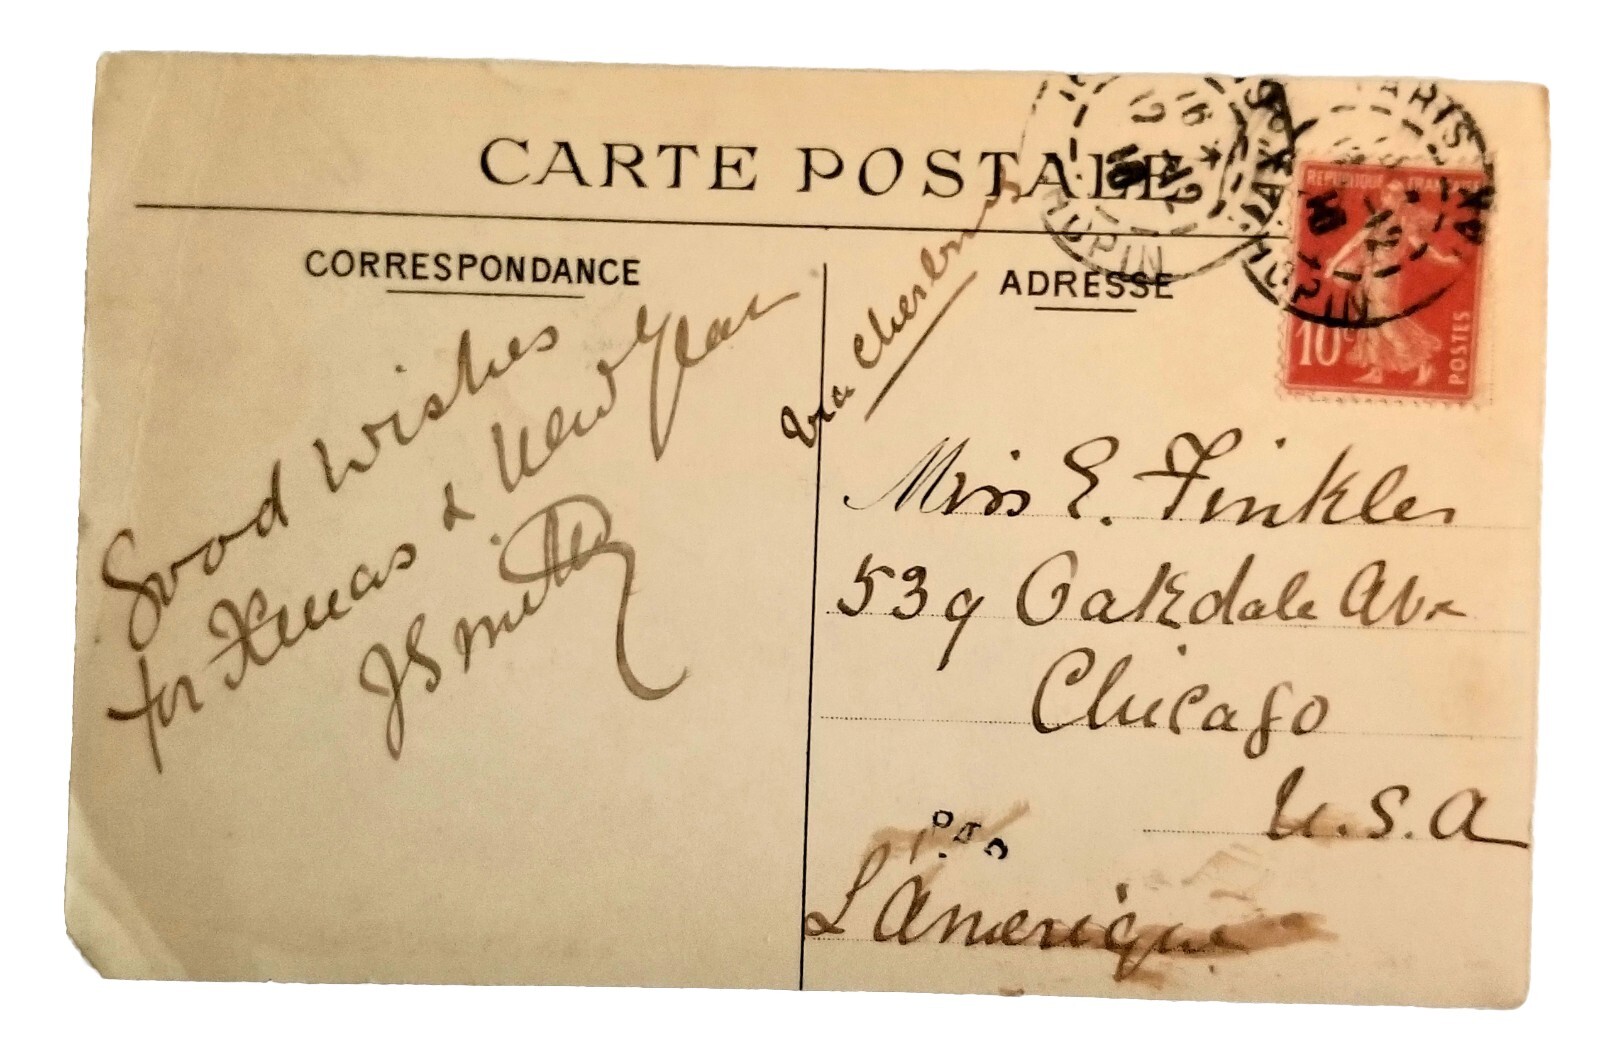 CARTE POSTALE
CORRESPONDANCE
ADRESSE
Good Wishes
for Xmas & New Year
via Cherbourg
REPUBLIQUE FRANÇAISE
10c
POSTES
Miss E. Finkler
539 Oakdale Ave
Chicago
U.S.A
L'Amerique